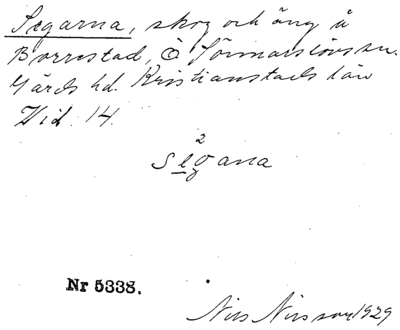 Segarna, skog och äng å
Borrestad, Ö Sönnarslövs sn.
Gärds hd. Kristianstads län
Vid. 14.
2
segana
Nr 5338.
Nils Nilsson 1929